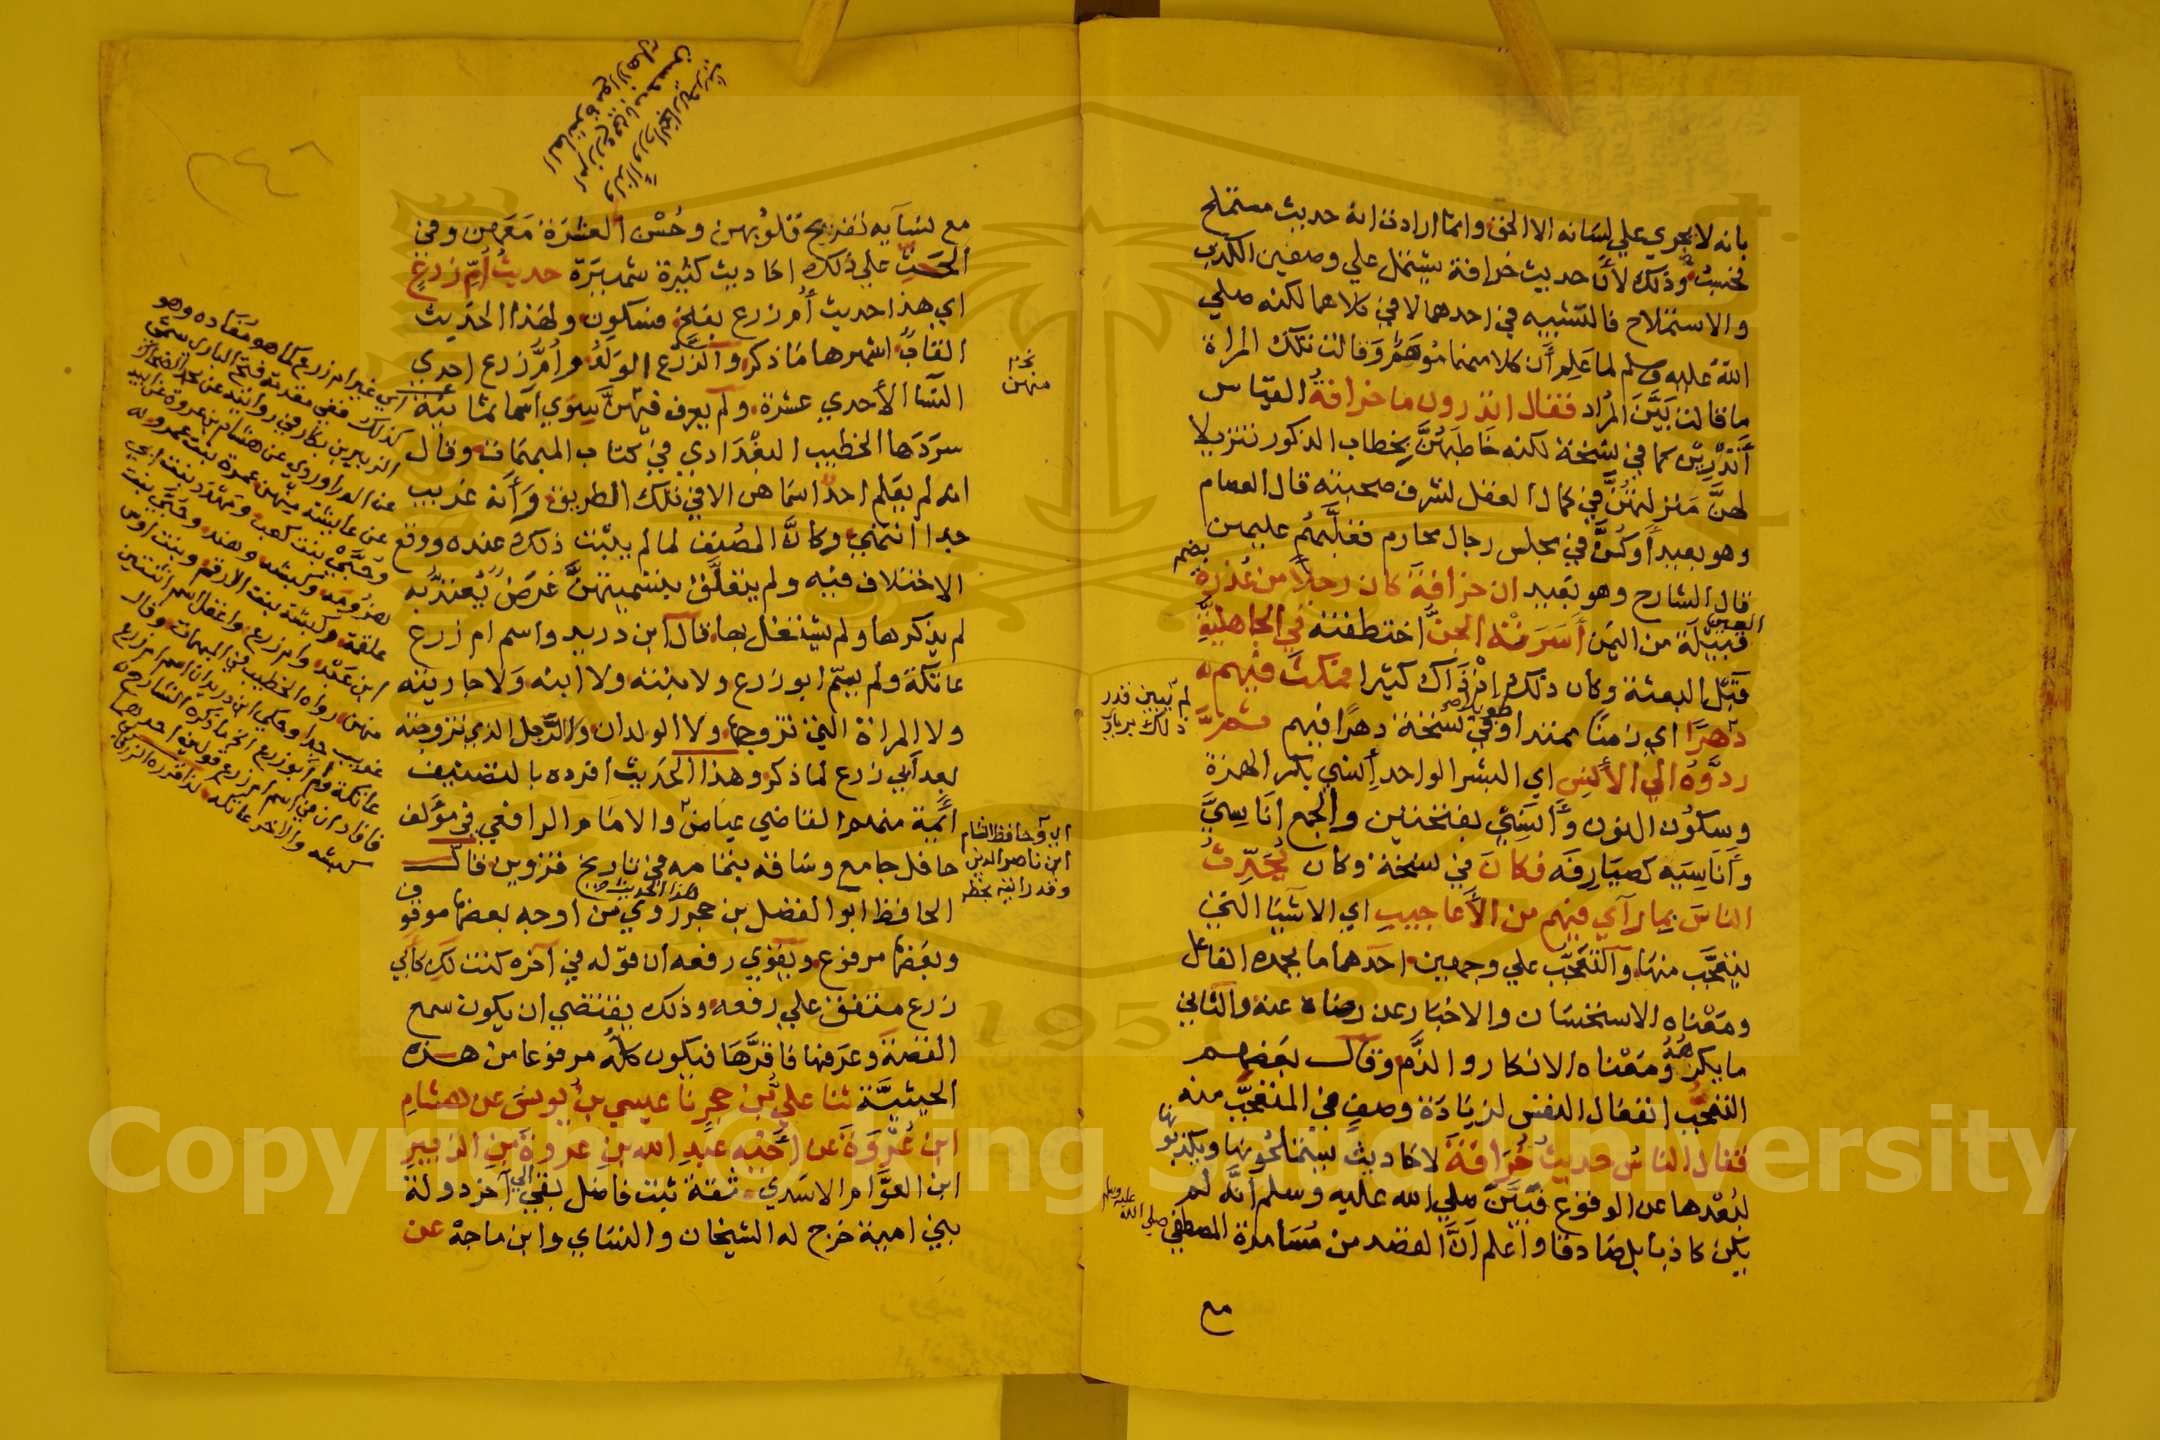 بانه لا يجري علي لسانه الا الحق وانما ارادت انه حديث مستملح
لحسنه وذلك لأن حديث خرافة يشتمل علي وصفين الكذب
والاستملاح فالتشبيه في احدهما لا في كلاهما لكنه صلي
الله عليه وسلم لما علم أن كلامهما موهم وقالت تلك المراة
ما قالت بين المراد فقال اتدرون ما خرافة القياس
أتدرين كما في نسخة لكنه خاطبهن بخطاب الذكور تنزيلا
لهن منزلتهن في كمال العقل لشرف صحبته قال العصام
وهو بعيد أو كن في مجلس رجال محارم فغلبهم عليهن
قال الشارح وهو بعيد ان خرافة كان رجلا من عذرة
بضم العين
قبيلة من اليمن أسرته الجن اختطفته في الجاهلية
قبل البعثة وكان ذلك اذ ذاك كثيرا فمكث فيهم
دهرا اي زمنا ممتدا وفي نسخة دهرا فيهم ثم
طويلا صح
لم يبين قدر
ذلك
ردوه الي الأنس اي البشر الواحد أنسي بكسر الهمزة
وسكون النون وأنسي بفتحتين والجمع اناسي
وأناسية كصيارفة فكان في نسخة وكان يحدث
الناس بما رآي فيهم من الأعاجيب اي الاشيا التي
يتعجب منها والتعجب علي وجهين احدهما ما يحمده الفاعل
ومعناه الاستحسان والاخبار عن رضاه عنه والثاني
ما يكرهه ومعناه الانكار والذم وقال بعضهم
التعجب انفعال النفس لزيادة وصف في المتعجب منه
فقال الناس حديث خرافة لاحاديث يستملحونها ويكذبونها
لبعدها عن الوقوع فبين صلي الله عليه وسلم أنه لم
يكن كاذبا بل صادقا واعلم أن القصد من مسامرة المصطفي صلي الله عليه وسلم
مع
مع نسآيه تفريح قلوبهن وحسن العشرة معهن وفي
الحث علي ذلك احاديث كثيرة شهيرة حديث أم زرع
اي هذا حديث أم زرع بفتح فسكون ولهذا الحديث
القاب اشهرها ما ذكر والزرع الولد وأم زرع احدي
النسآ الأحدي عشرة ولم يعرف فيهن سوي اسما ثمانية
سردها الخطيب البغدادي في كتاب المبهمات وقال
انه لم يعلم احدا اسماهن الا في تلك الطريق وأنه غريب
جدا انتهي وكان المصنف لما لم يثبت ذلك عنده ووقع
الاختلاف فيه ولم يتعلق بتسميتهن غرض يعتد به
لم يذكرها ولم يشتغل بها قال ابن دريد واسم ام زرع
عاتكة ولم يسم ابو زرع ولا بنته ولا ابنه ولا جاريته
ولا المراة التي تزوجها ولا الولدان ولا الرجل الذي تزوجته
بعد أبي زرع لما ذكر وهذا الحديث افرده بالتصنيف
ائمة منهم القاضي عياض والامام الرافعي في مؤلف
حافل جامع وساقه بتمامه في تاريخ قزوين قال
الحافظ ابو الفضل بن حجر روي من اوجه بعضها موقوف
هذا الحديث صح
وبعضها مرفوع ويقوي رفعه ان قوله في آخره كنت لك كأبي
زرع متفق علي رفعه وذلك يقتضي ان يكون سمع
القصة وعرفها فاقرها فيكون كله مرفوعا من هذه
الحيثية ثنا علي بن حجر نا عيسي بن يونس عن هشام
ابن عروة عن أخيه عبد الله بن عروة بن الزبير
ابن العوام الاسدي ثقة ثبت فاضل بقي الي آخر دولة
بني امية خرج له الشيخان والنساي وابن ماجة عن
منهن
ابن ناصر الدين
وقد رايته بخطه
اي غير ام زرع كما هو مفاده وهو
كذلك ففي مقدمة فتح الباري
علقمة وكبشة بنت الارقم وبنت اوس
منهن رواه الخطيب في المبهمات وقال
غريب جدا وحكي ابن دريد ان اسم ام زرع
عاتكة
فافاد ان في اسم ام زرع قولين احدهما
Copyright © King Saud University
1957